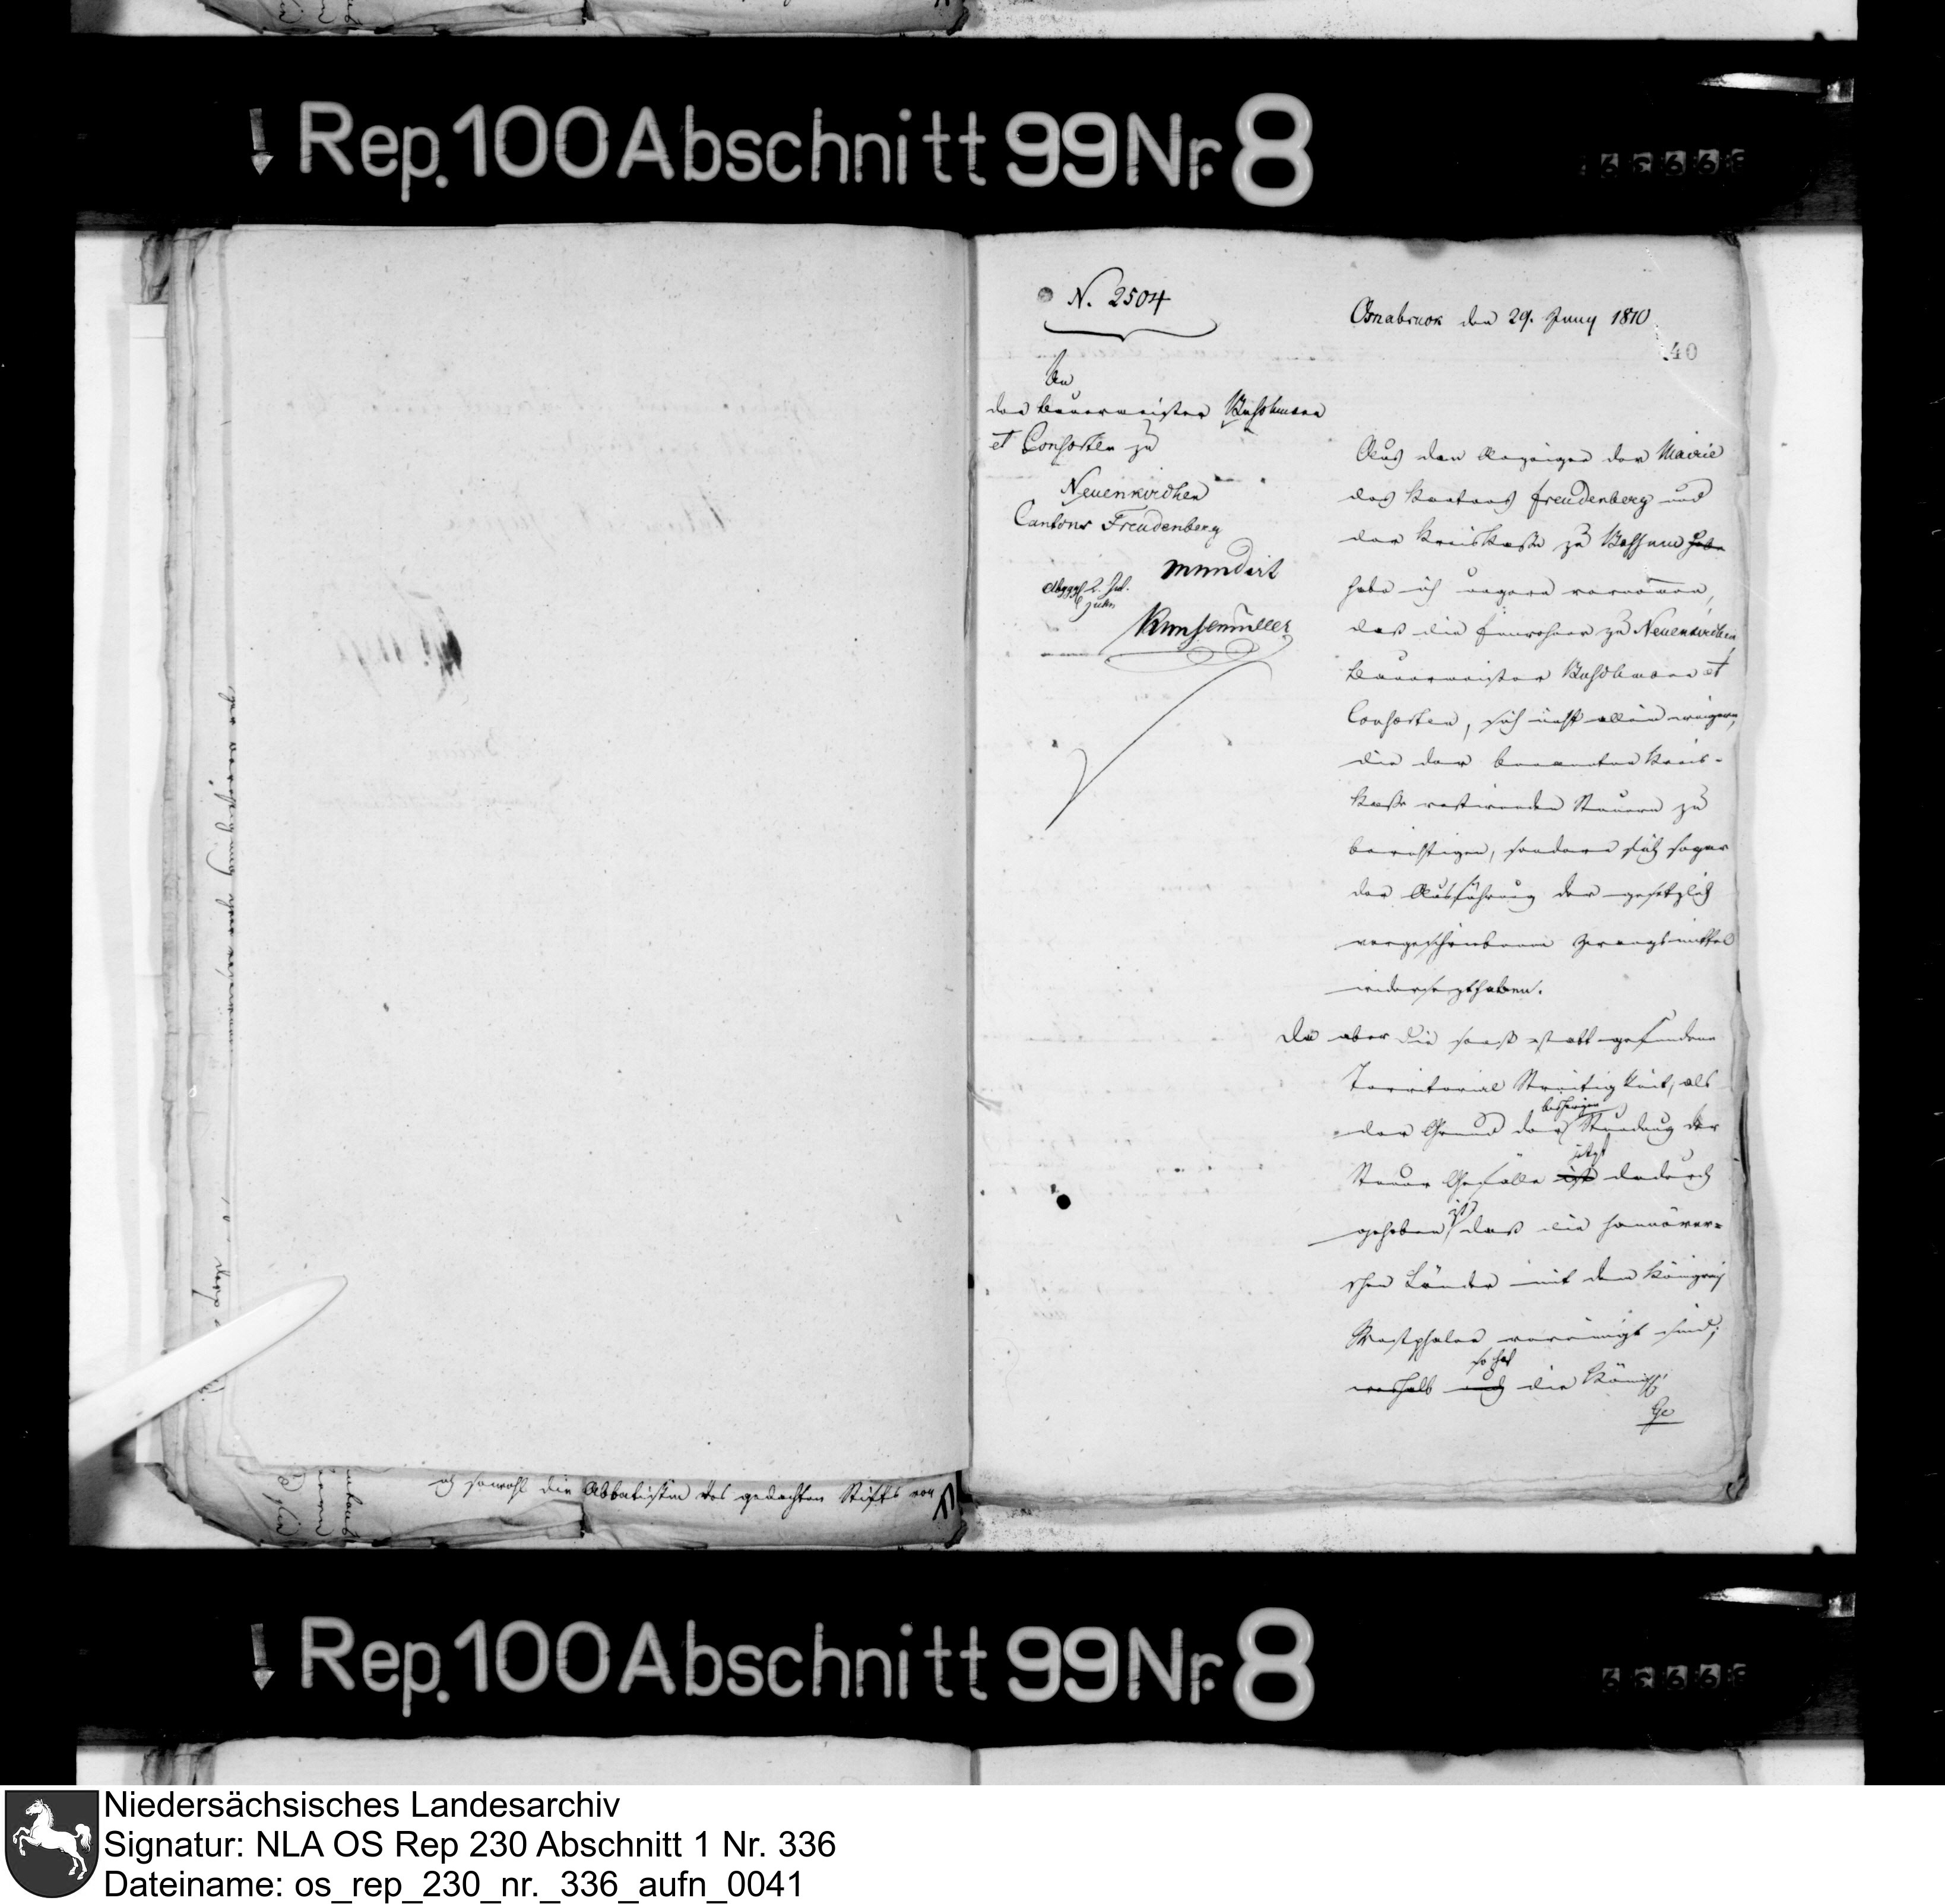 Rep. 100 Abschnitt 99 Nr. 8
N. 2504
Osnabruck den 29. Juny 1810
40
An
den Bauermeister Buschmann
et Consorten zu
Neuenkirchen
Cantons Freudenberg
mundirt
Kunsemüller
Aus den Anzeigen der Mairie
des Kantons Freudenberg und
der Kreiskasse zu Bassum habe
habe ich ungern vernommen,
daß die Einwohner zu Neuenkirchen
Bauermeister Buschmann et
Consorten, sich nicht allein weigern,
die der benannten Kreis-
kasse restirenden Steuern zu
berichtigen, sondern sich sogar
der Ausführung der gesetzlich
vorgeschriebenen Zwangsmittel
widersezt haben.
Da aber die sonst statt gefundene
Territorial Streitigkeit, als
bisherigen
der Grund der Stundung der
jetzt
Steuer Gefälle ist dadurch
ist
gehoben daß die hannöver=
schen Länder mit dem Königreich
Westphalen vereinigt sind;
so hat
weshalb auch die Königl.
Ge
sowohl die Abbatissin des gedachten Stifts von
Rep. 100 Abschnitt 99 Nr. 8
Niedersächsisches Landesarchiv
Signatur: NLA OS Rep 230 Abschnitt 1 Nr. 336
Dateiname: os_rep_230_nr._336_aufn_0041